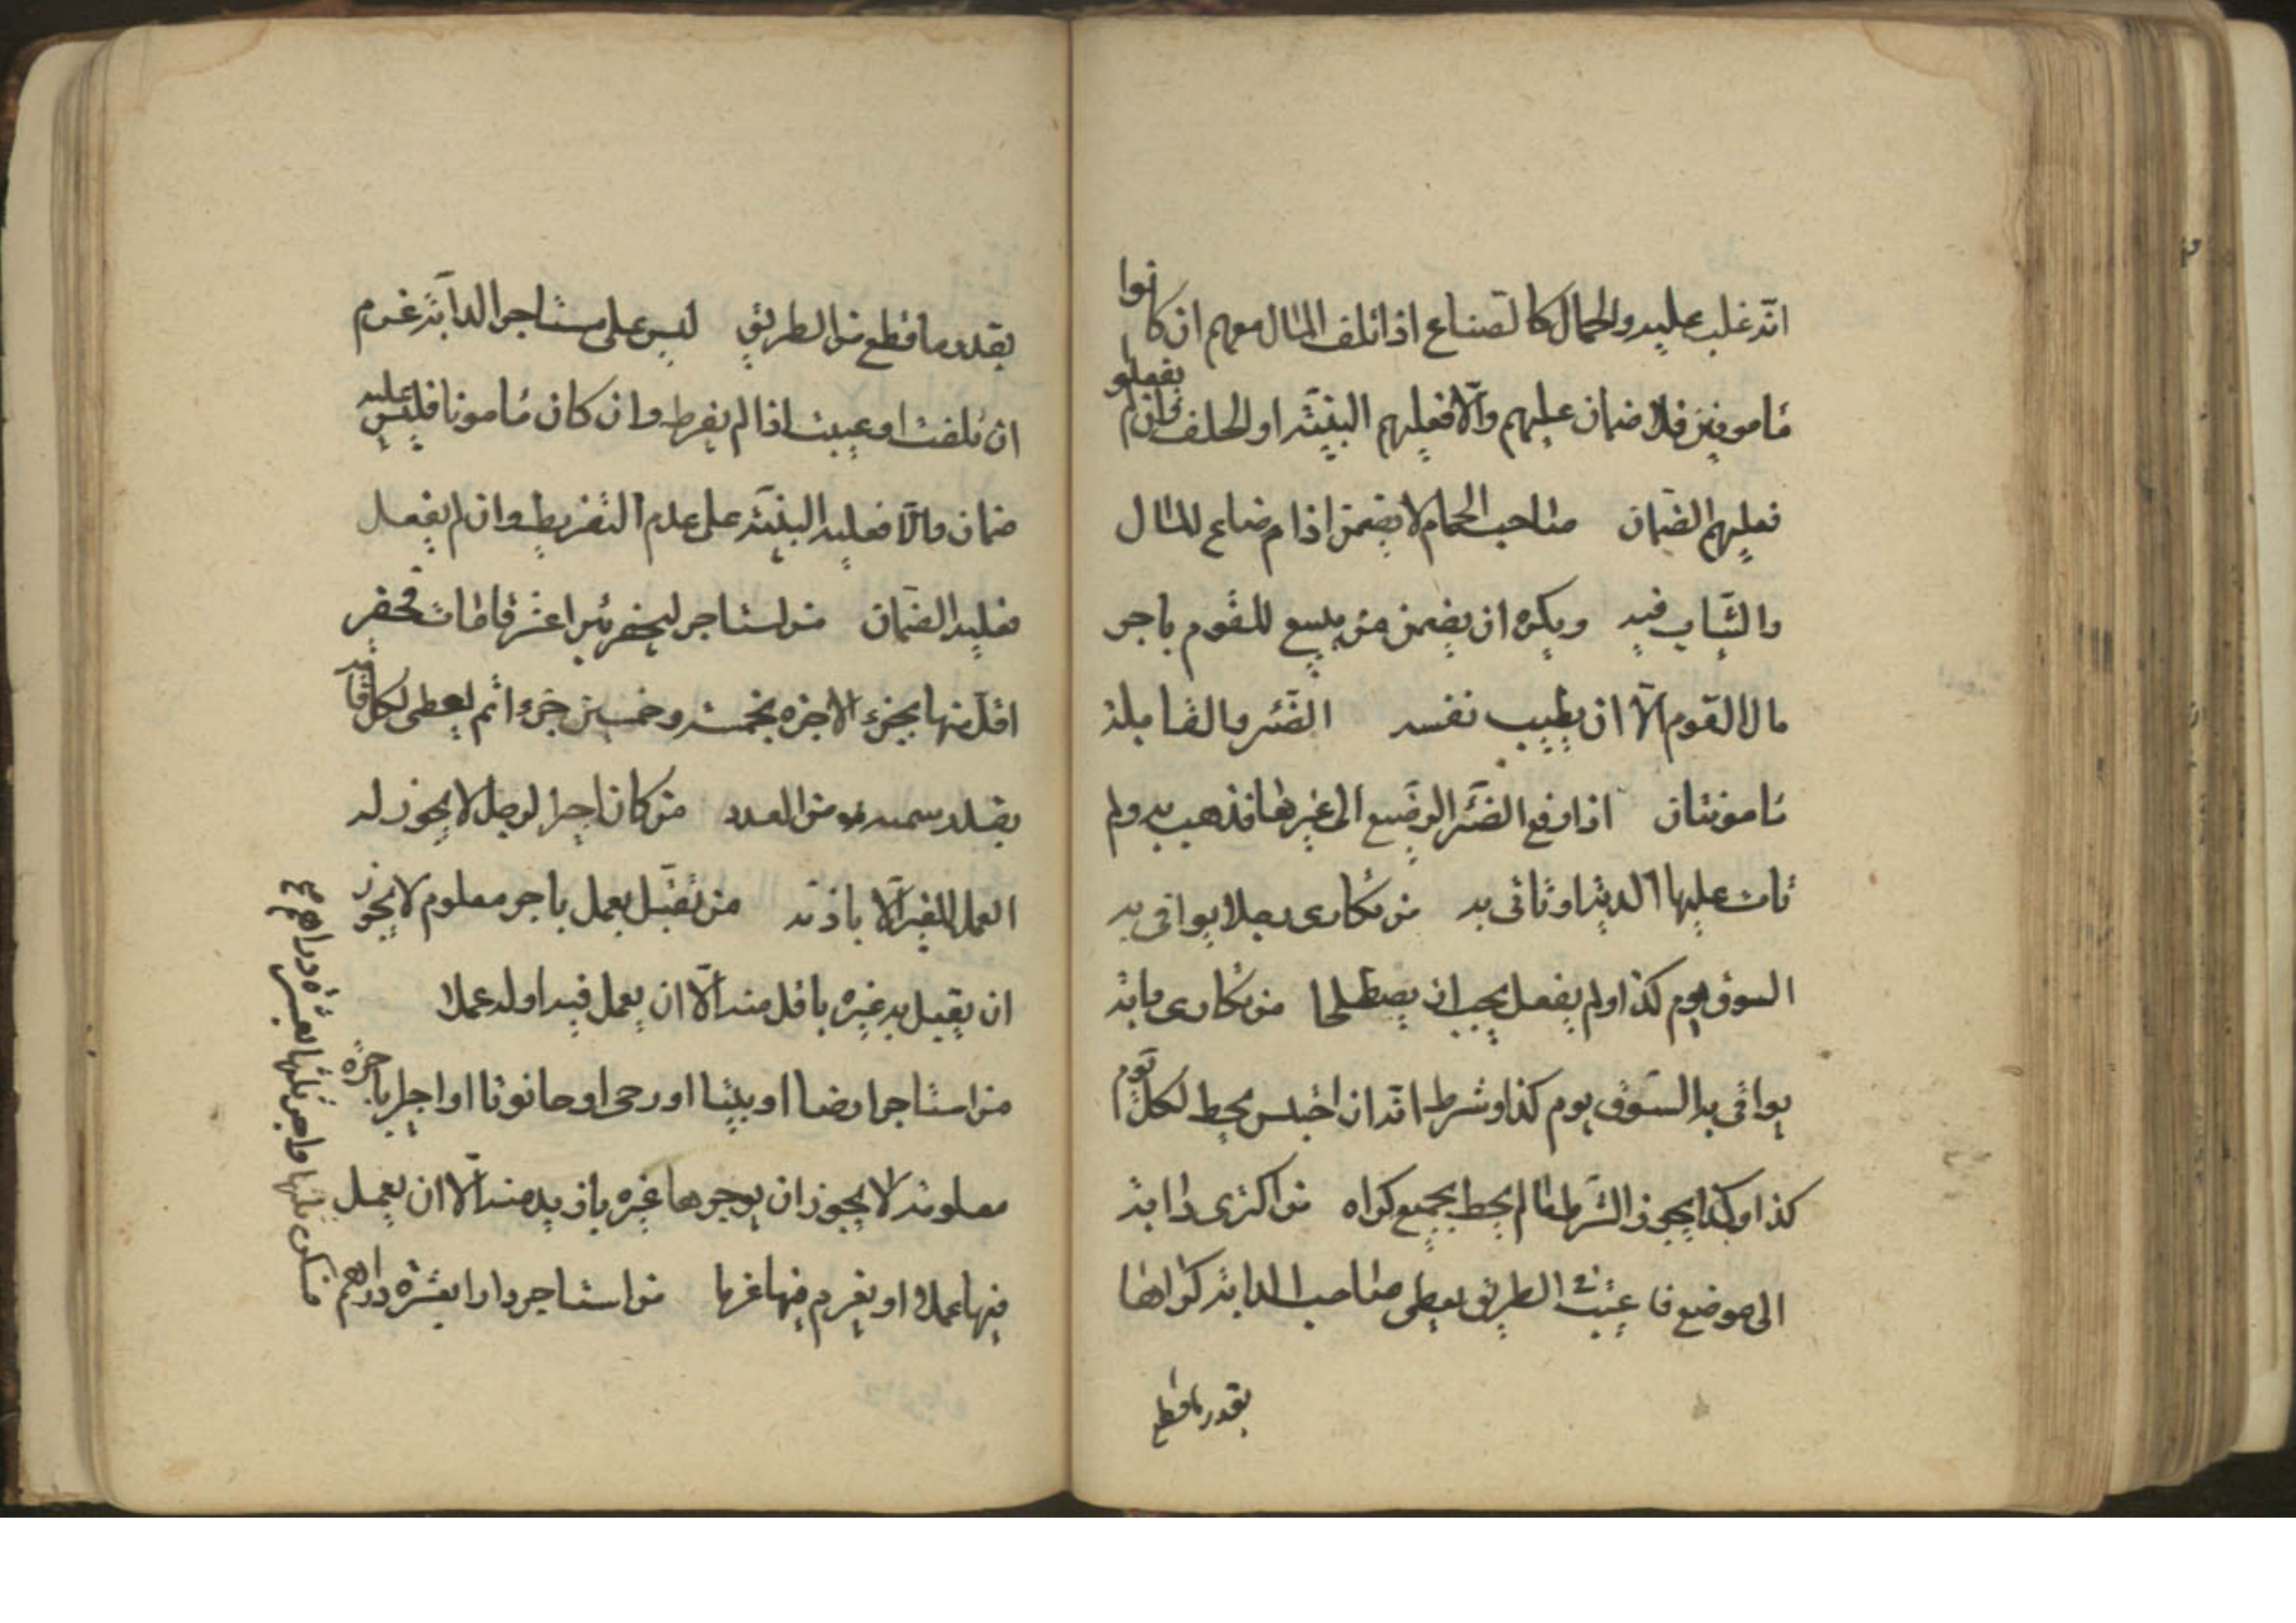 انّه غلب عليه والحمال كالصّناع اذا تلف المال معهم ان كانوا
مأمونين فلا ضمان عليهم والّا فعليهم البيّنة او الحلف وان لم يفعلوا
فعليهم الضّمان صاحب الحمام لا يضمن اذا م ضاع المال
والثّياب فيه ويكره ان يضمن من يبيع للقوم باجر
مال القوم الّا ان يطيب نفسه الضّئر والقابلة
مأمونتان اذا دفع الضّئر الرضيع الى غيرها فذهب به ولم
تات عليها الدية او تاتى به من تكارى رجلا يوافى به
السوق يوم كذا ولم يفعل يجب ان يصطلحا من تكارى دابة
يوافى به السّوق يوم كذا وشرط انّه ان احتبس يحط لكل يوم
كذا وكذا يجوز الشّرط ما لم يحط بجميع كراه من اكترى دابة
الى موضع فاعيت فى الطريق يعطى صاحب الدابة كراها
بقدر ما قطع
بقدر ما قطع من الطريق ليس على مستاجر الدابّة غرم
ان تلفت او عيبت اذا لم يفرط وان كان مأمونا فليس عليه
ضمان والّا فعليه البيّنة على عدم التفريط وان لم يفعل
فعليه الضّمان من استاجر ليحفر بئرا عشر قامات فحفر
اقلّ منها يجزء الاجره بخمسة وخمسين جزءا ثم يعطى لكل قامة
بقدر من العدد من كان اجيرا لرجل لا يجوز له
العمل للغير الّا باذنه من تقبّل بعمل باجر معلوم لا يجوز
ان يقبل به غيره باقل منه الّا ان يعمل فيه اوله عملا
من استاجر ارضا او بيتا او رحى او حانوتا او اجيرا باجرة
معلومة لا يجوز ان يوجرها غيره بازيد منه الّا ان يعمل
فيها عملا او يغرم فيها غرما من استاجر دارا بعشرة دراهم
فسكن ثلثها واجر ثلثها بعشرة دراهم